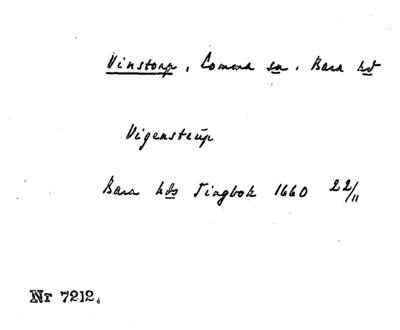 Vinstorp, Lomma sn, Bara hd
Vigenstrüp
Bara hds Tingbok 1660 22/11
Nr 7212.